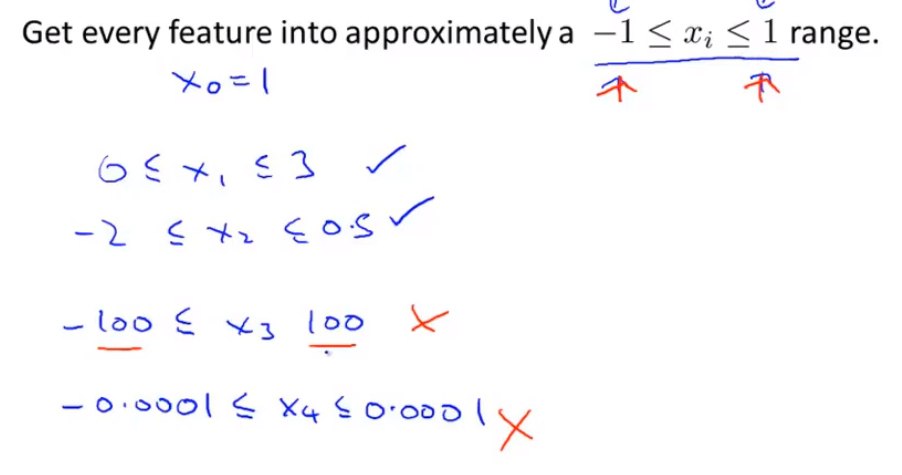 Get every feature into approximately a −1 ≤ xᵢ ≤ 1 range.
x₀ = 1
0 ≤ x₁ ≤ 3 ✓
−2 ≤ x₂ ≤ 0.5 ✓
−100 ≤ x₃ 100 ×
−0.0001 ≤ x₄ ≤ 0.0001 ×